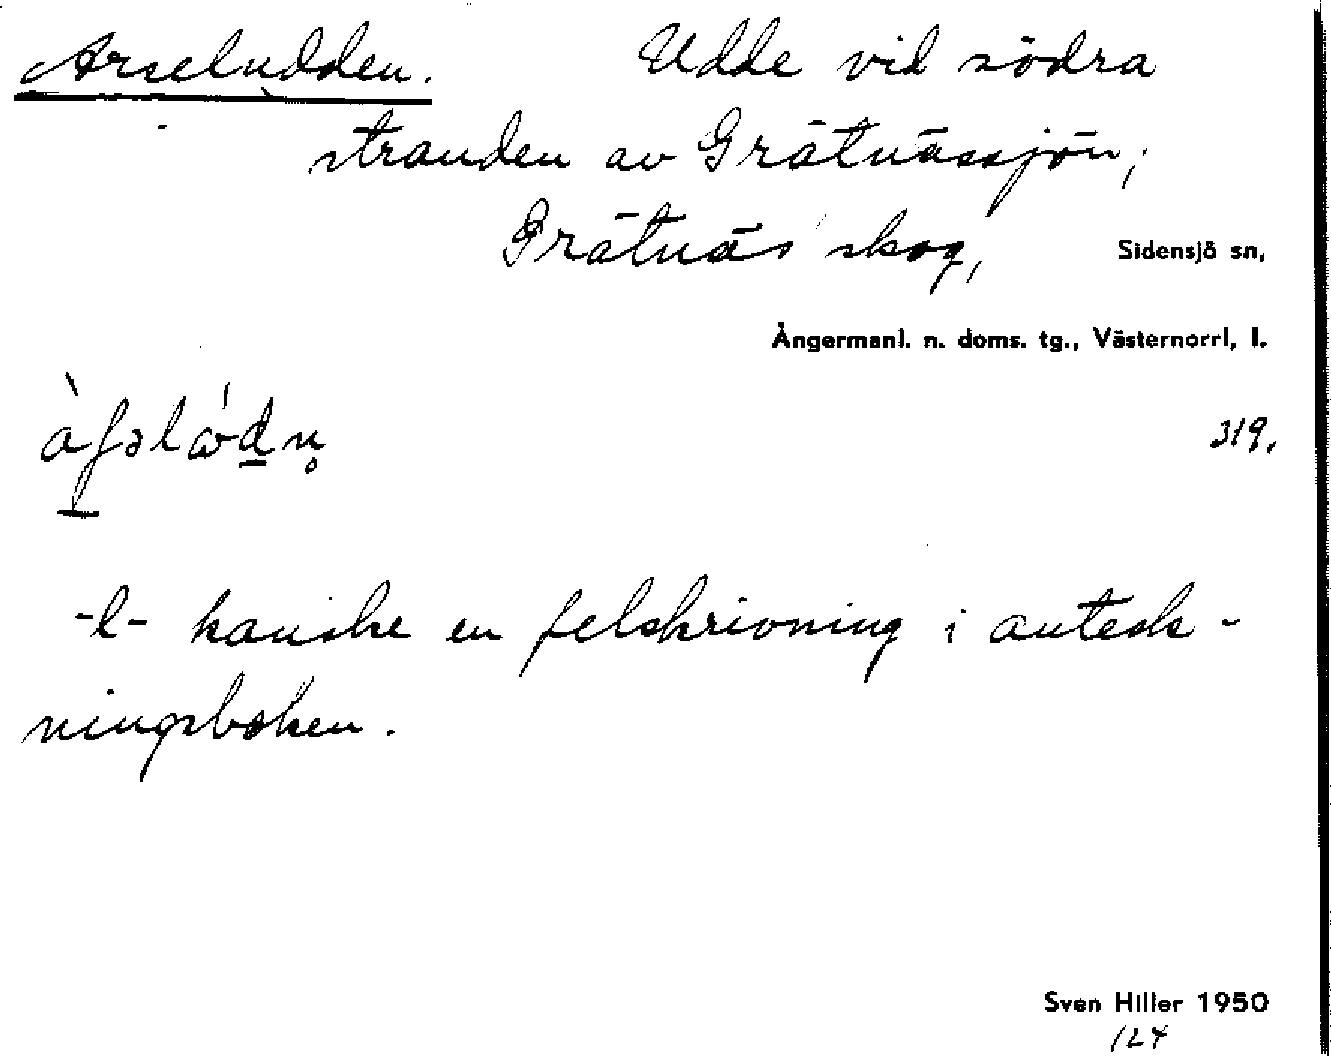 Arseludden. Udde vid södra
stranden av Grätnässjön,
Grätnäs skog, Sidensjö sn,
Ångermanl. n. doms. tg., Västernorrl, l.
319.
-l- kanske en felskrivning i anteck-
ningsboken.
Sven Hiller 1950
124